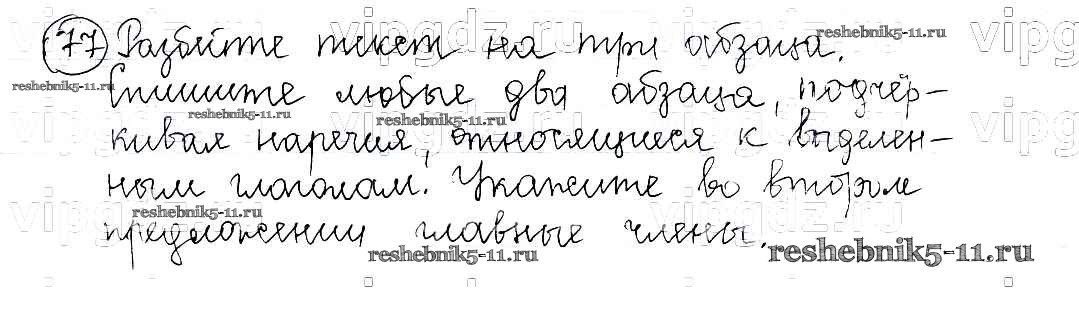 77 Разбейте текст на три абзаца.
Спишите любые два абзаца, подчёр-
кивая наречия, относящиеся к выделен-
ным глаголам. Укажите во втором
предложении главные члены.
reshebnik5-11.ru
reshebnik5-11.ru
reshebnik5-11.ru
reshebnik5-11.ru
reshebnik5-11.ru
reshebnik5-11.ru
reshebnik5-11.ru
vipgdz.ru
vipgdz.ru
vipgdz.ru
vipgdz.ru